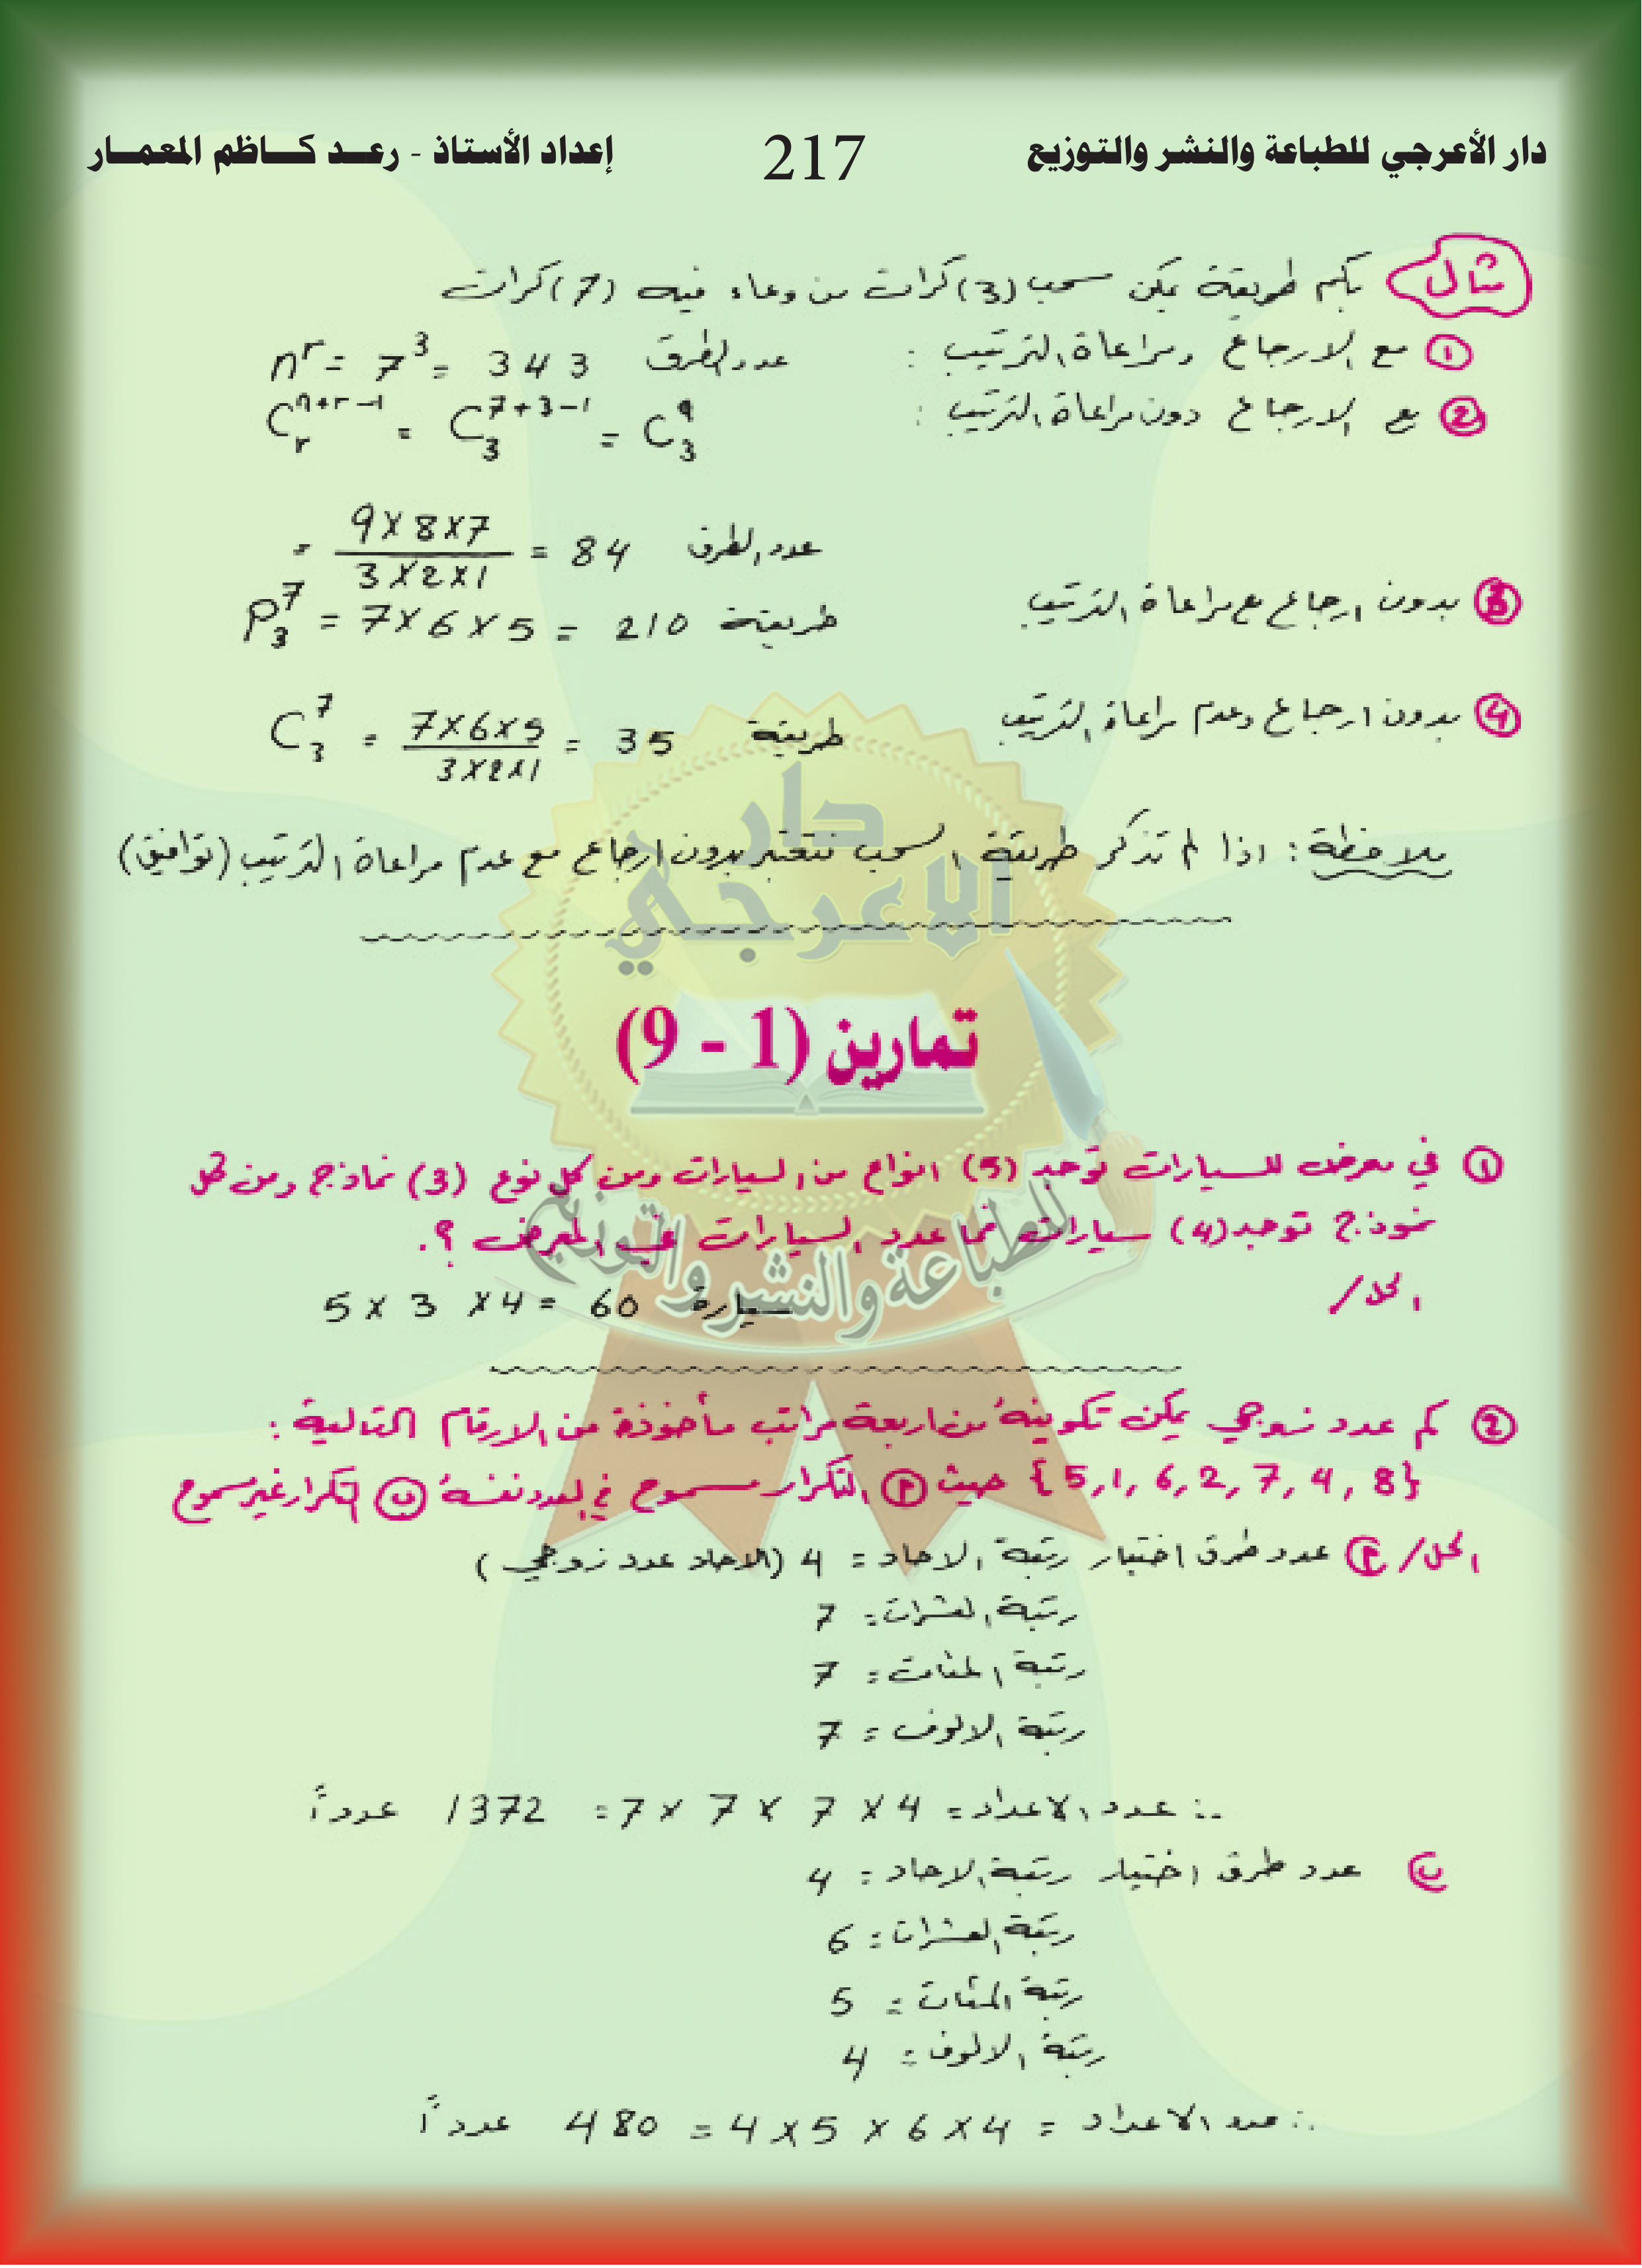 دار الأعرجي للطباعة والنشر والتوزيع 217 إعداد الأستاذ - رعد كاظم المعمار
مثال بكم طريقة يمكن سحب (3) كرات من وعاء فيه (7) كرات
① مع الارجاع ومراعاة الترتيب : عدد الطرق n^r = 7^3 = 343
② مع الارجاع دون مراعاة الترتيب : C_r^{n+r-1} = C_3^{7+3-1} = C_3^9
= \frac{9×8×7}{3×2×1} = 84 عدد الطرق
③ بدون ارجاع مع مراعاة الترتيب P_3^7 = 7×6×5 = 210 طريقة
④ بدون ارجاع وعدم مراعاة الترتيب C_3^7 = \frac{7×6×5}{3×2×1} = 35 طريقة
ملاحظة : اذا لم تذكر طريقة السحب فتعتبر بدون ارجاع مع عدم مراعاة الترتيب (توافيق)
دار
الاعرجي
للطباعة والنشر والتوزيع
تمارين (1 - 9)
① في معرض للسيارات توجد (5) انواع من السيارات ومن كل نوع (3) نماذج ومن كل
نموذج توجد (4) سيارات فما عدد السيارات في المعرض ؟.
الحل/ 5 × 3 × 4 = 60 سيارة
② كم عدد زوجي يمكن تكوينه من اربعة مراتب مأخوذة من الارقام التالية :
{5,1,6,2,7,4,8} حيث Ⓟ التكرار مسموح في العدد نفسه ⓑ التكرار غير مسموح
الحل/ Ⓟ عدد طرق اختيار رتبة الاحاد = 4 (الاحاد عدد زوجي)
رتبة العشرات = 7
رتبة المئات = 7
رتبة الالوف = 7
∴ عدد الاعداد = 4 × 7 × 7 × 7 = 1372 عدداً
ب عدد طرق اختيار رتبة الاحاد = 4
رتبة العشرات = 6
رتبة المئات = 5
رتبة الالوف = 4
∴ عدد الاعداد = 4 × 6 × 5 × 4 = 480 عدداً